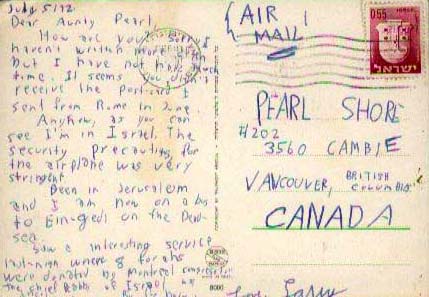 July 5/72
Dear Aunty Pearl,
How are you? Sorry I
haven't written more
but I have not had much
time. It seems you didn't
receive the postcard I
sent from Rome in June.
Anyhow, as you can
see I'm in Israel. The
security precautions for
the airplane was very
stringent.
Been in Jerusalem
and I am now on a bus
to Ein-gedi on the Dead-
sea.
Saw a interesting service
where 9 torahs
were donated by Montreal congregation
The chief Rabbi of Israel
Love, Larry
AIR
MAIL!
0.55
ישראל
PEARL SHORE
#202
3560 CAMBIE
VANCOUVER, BRITISH
COLUMBIA
CANADA
8000